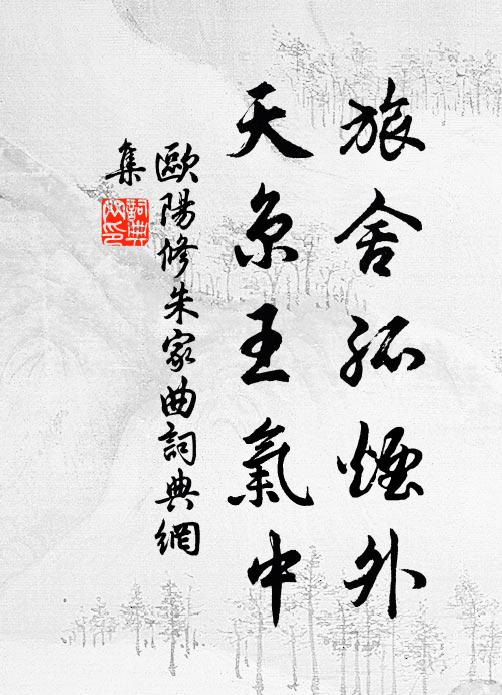 旅舍孤煙外
天京王氣中
歐陽修朱家曲詞典網
集
詞典網印